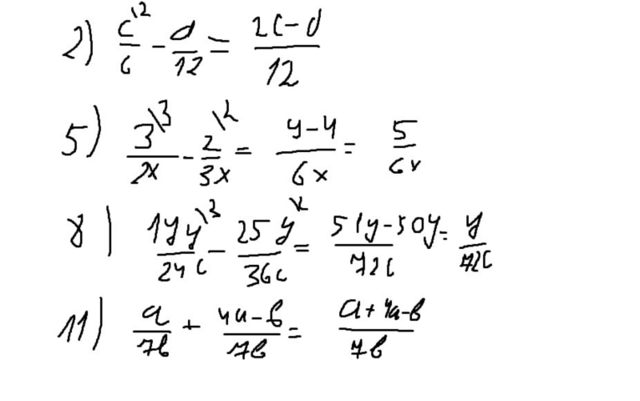 2) c\2/6 - d/12 = (2c-d)/12
5) 3\3/2x - 2\2/3x = (9-4)/6x = 5/6x
8) 17y\3/24c - 25y\2/36c = (51y-50y)/72c = y/72c
11) a/7b + (4a-b)/7b = (a+4a-b)/7b